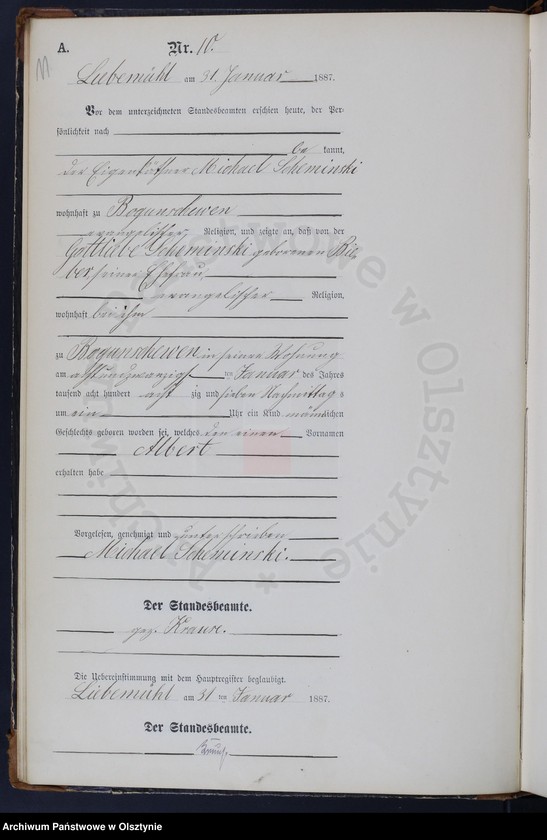 A.
Nr. 10.
11
Liebemühl am 31. Januar 1887.
Vor dem unterzeichneten Standesbeamten erschien heute, der Per-
sönlichkeit nach
be kannt,
der Eigenkäthner Michael Scheminski
wohnhaft zu Bogunschewen
evangelischer Religion, und zeigte an, daß von der
Gottliebe Scheminski geborenen Rie-
ber, seiner Ehefrau,
evangelischer Religion,
wohnhaft bei ihm
zu Bogunschewen in seiner Wohnung
am achtundzwanzigsten ten Januar des Jahres
tausend acht hundert acht zig und sieben Nachmittags
um ein Uhr ein Kind männlichen
Geschlechts geboren worden sei, welches den einen Vornamen
Albert
erhalten habe
Vorgelesen, genehmigt und unterschrieben
Michael Scheminski.
Der Standesbeamte.
gez. Krause.
Die Uebereinstimmung mit dem Hauptregister beglaubigt.
Liebemühl am 31 ten Januar 1887.
Der Standesbeamte.
Archiwum Państwowe w Olsztynie *
Archiwum Państwowe w Olsztynie